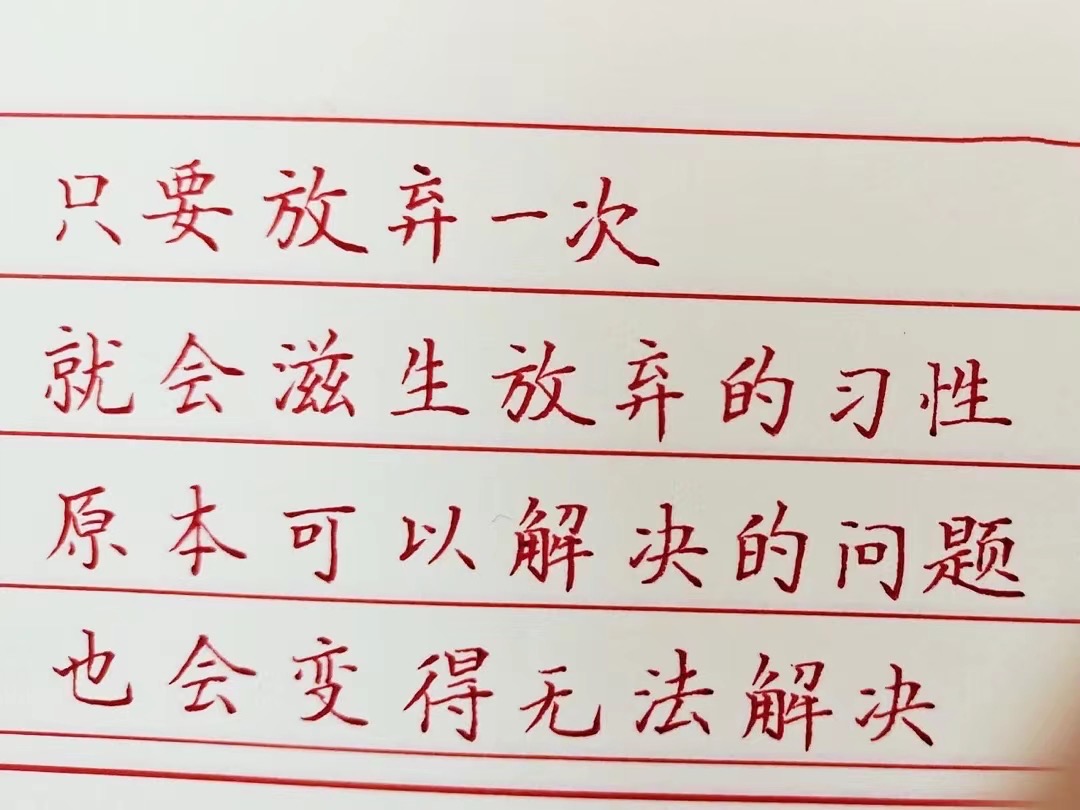 只要放弃一次
就会滋生放弃的习性
原本可以解决的问题
也会变得无法解决